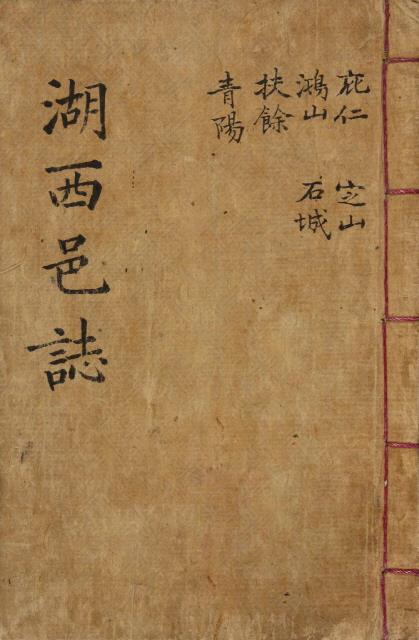 庇仁 定山
鴻山 石城
扶餘
青陽
湖西邑誌